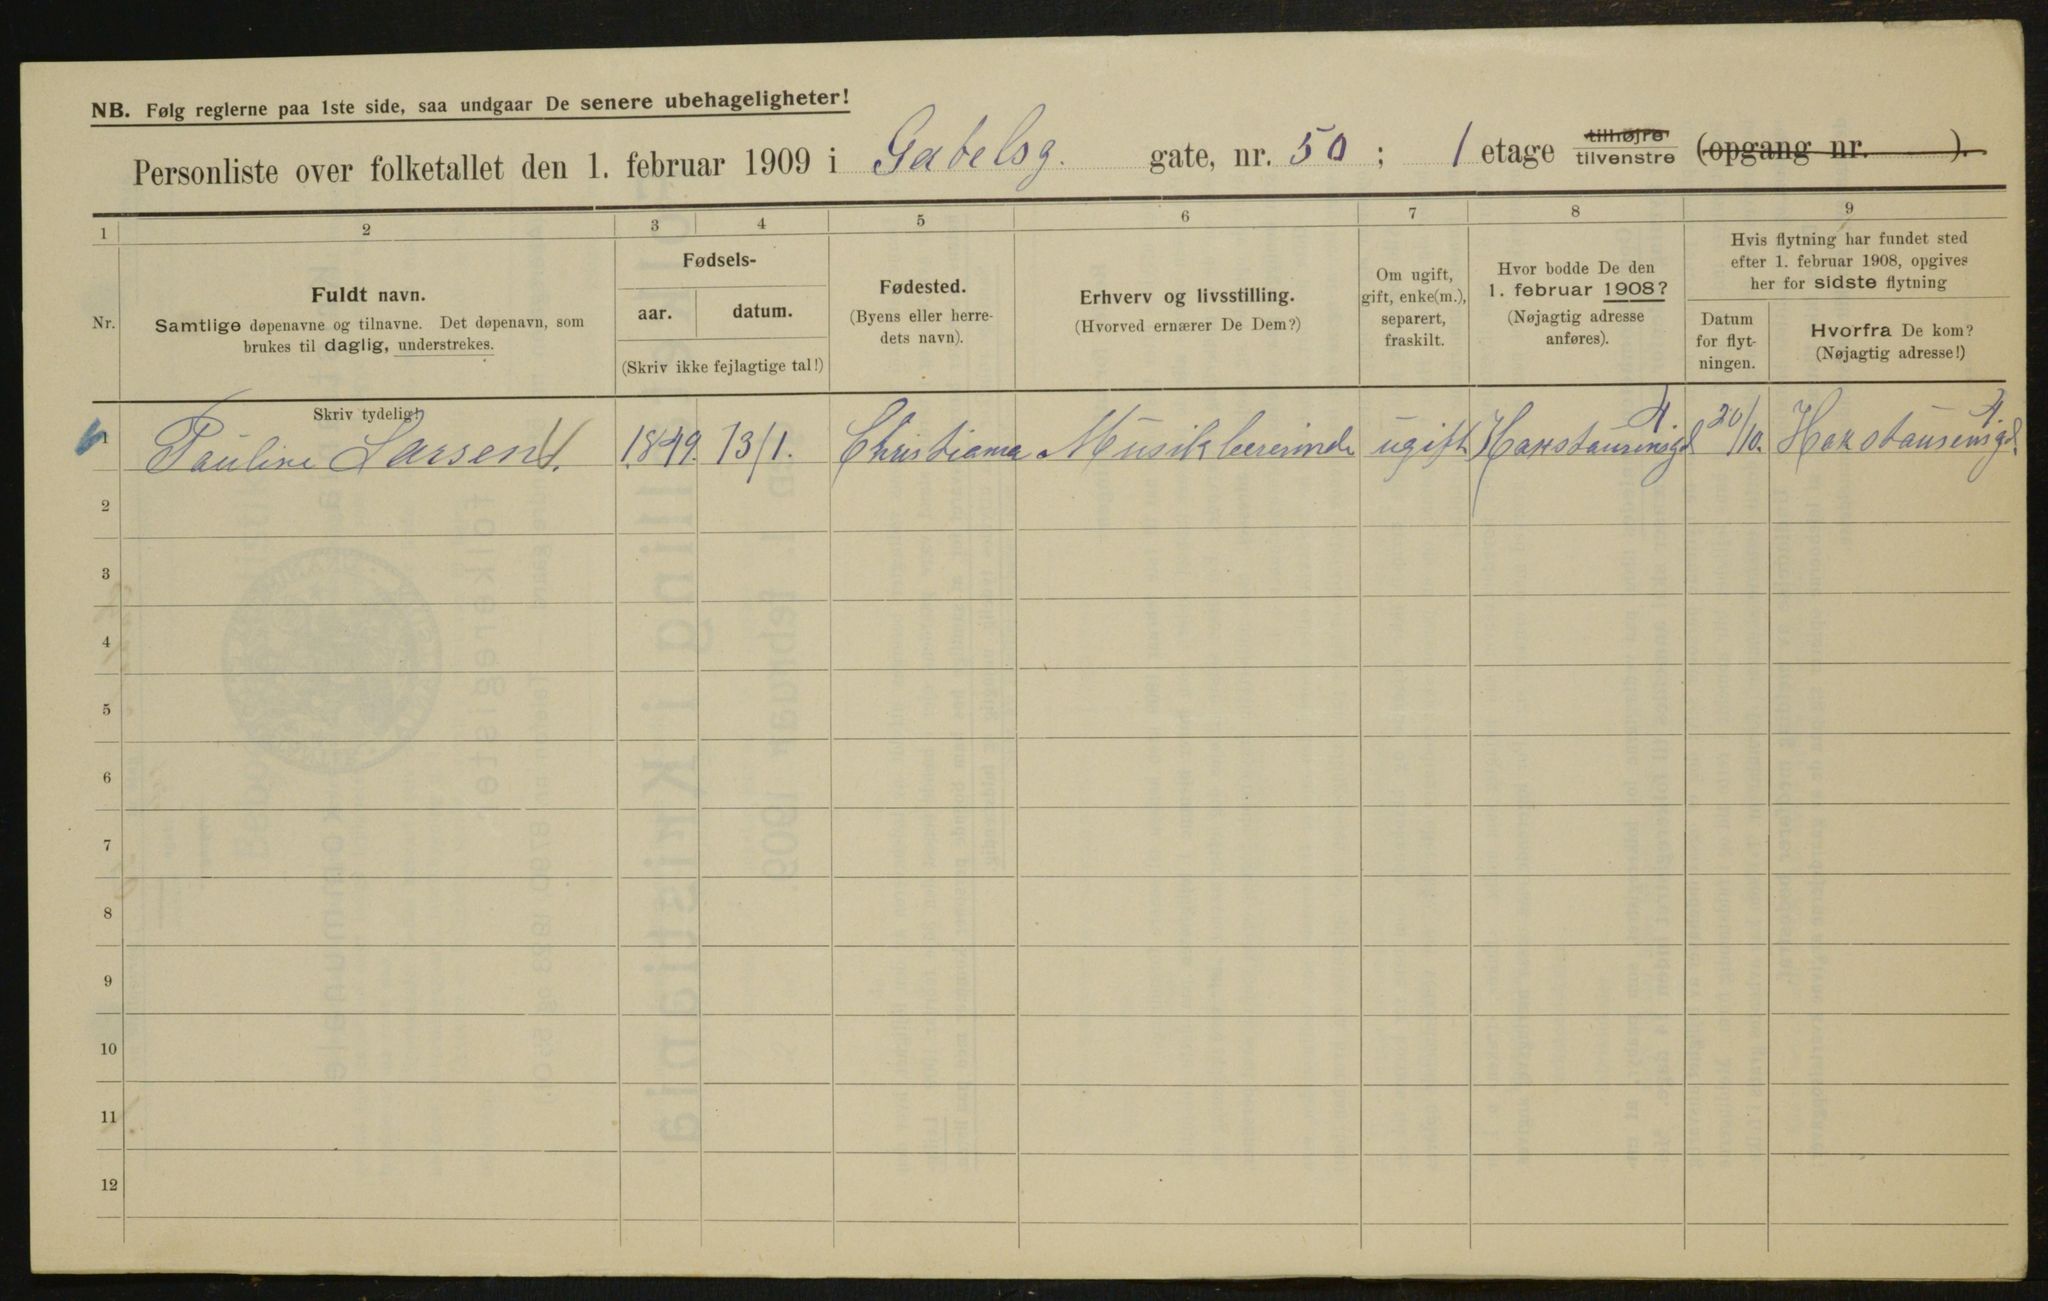 NB. Følg reglerne paa 1ste side, saa undgaar De senere ubehageligheter!
Personliste over folketallet den 1. februar 1909 i Gabelsg. gate, nr. 50 ; 1 etage tilhøjre tilvenstre (opgang nr. ).
1 2 3 4 5 6 7 8 9
Nr.
Fuldt navn.
Samtlige døpenavne og tilnavne. Det døpenavn, som
brukes til daglig, understrekes.
Fødsels-
aar. datum.
(Skriv ikke fejlagtige tal!)
Fødested.
(Byens eller herre-
dets navn).
Erhverv og livsstilling.
(Hvorved ernærer De Dem?)
Om ugift,
gift, enke(m.),
separert,
fraskilt.
Hvor bodde De den
1. februar 1908?
(Nøjagtig adresse
anføres).
Hvis flytning har fundet sted
efter 1. februar 1908, opgives
her for sidste flytning
Datum
for flyt-
ningen.
Hvorfra De kom?
(Nøjagtig adresse!)
Skriv tydelig!
1 Pauline Larsen 1849. 13/1. Christiania Musiklærerinde ugift 20/10.
2
3
4
5
6
7
8
9
10
11
12